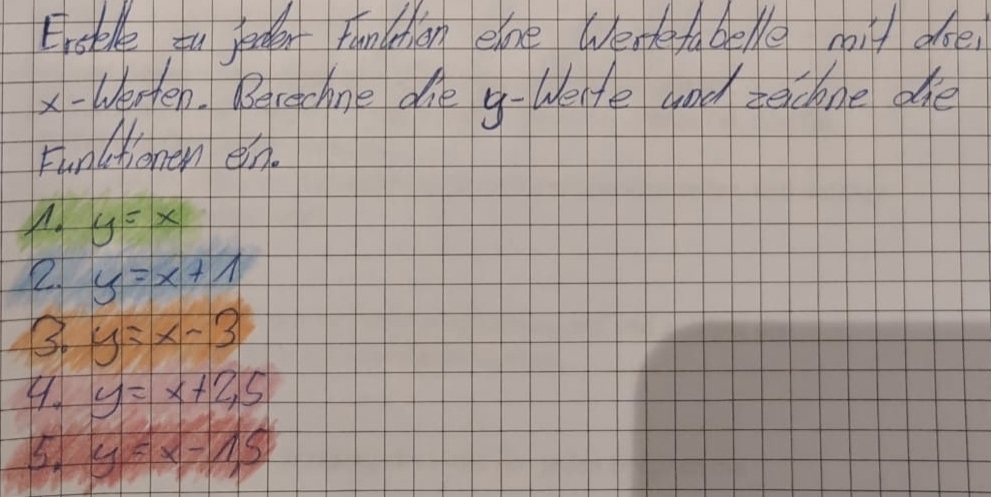 Erstelle zu jeder Funktion eine Wertetabelle mit drei
x-Werten. Berechne die y-Werte und zeichne die
Funktionen ein.
1. y = x
2. y = x + 1
3. y = x - 3
4. y = x + 2,5
5. y = x - 1,5